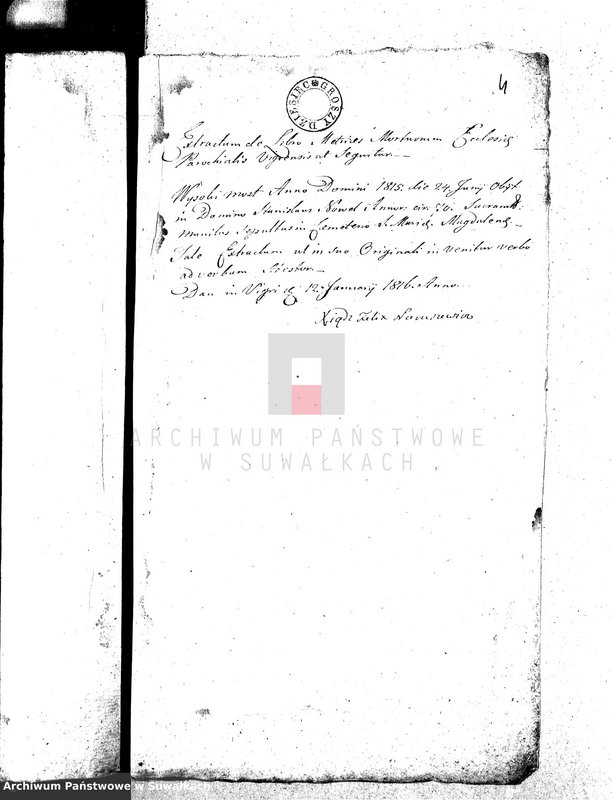 4
DZIESIĘC GROSZY
Extractum de Libro Metrices Mortuorum Ecclesię
Parochialis Vigrensis ut Sequitur. _
Wysoki most Anno Domini 1815. die 24. Junij Obijt
in Domino Stanislaus Nowel Annor. cir. 56. Sacramtt.
munitus Sepultus in Cemeterio S. Marię Magdalenę. _
Tale Extractum ut in suo Originali in venitur verbo
ad verbum _
Dan in Vigrię 12. Januarij 1816. Anno.
Xiądz Felix
ARCHIWUM PAŃSTWOWE
W SUWAŁKACH
Archiwum Państwowe w Suwałkach